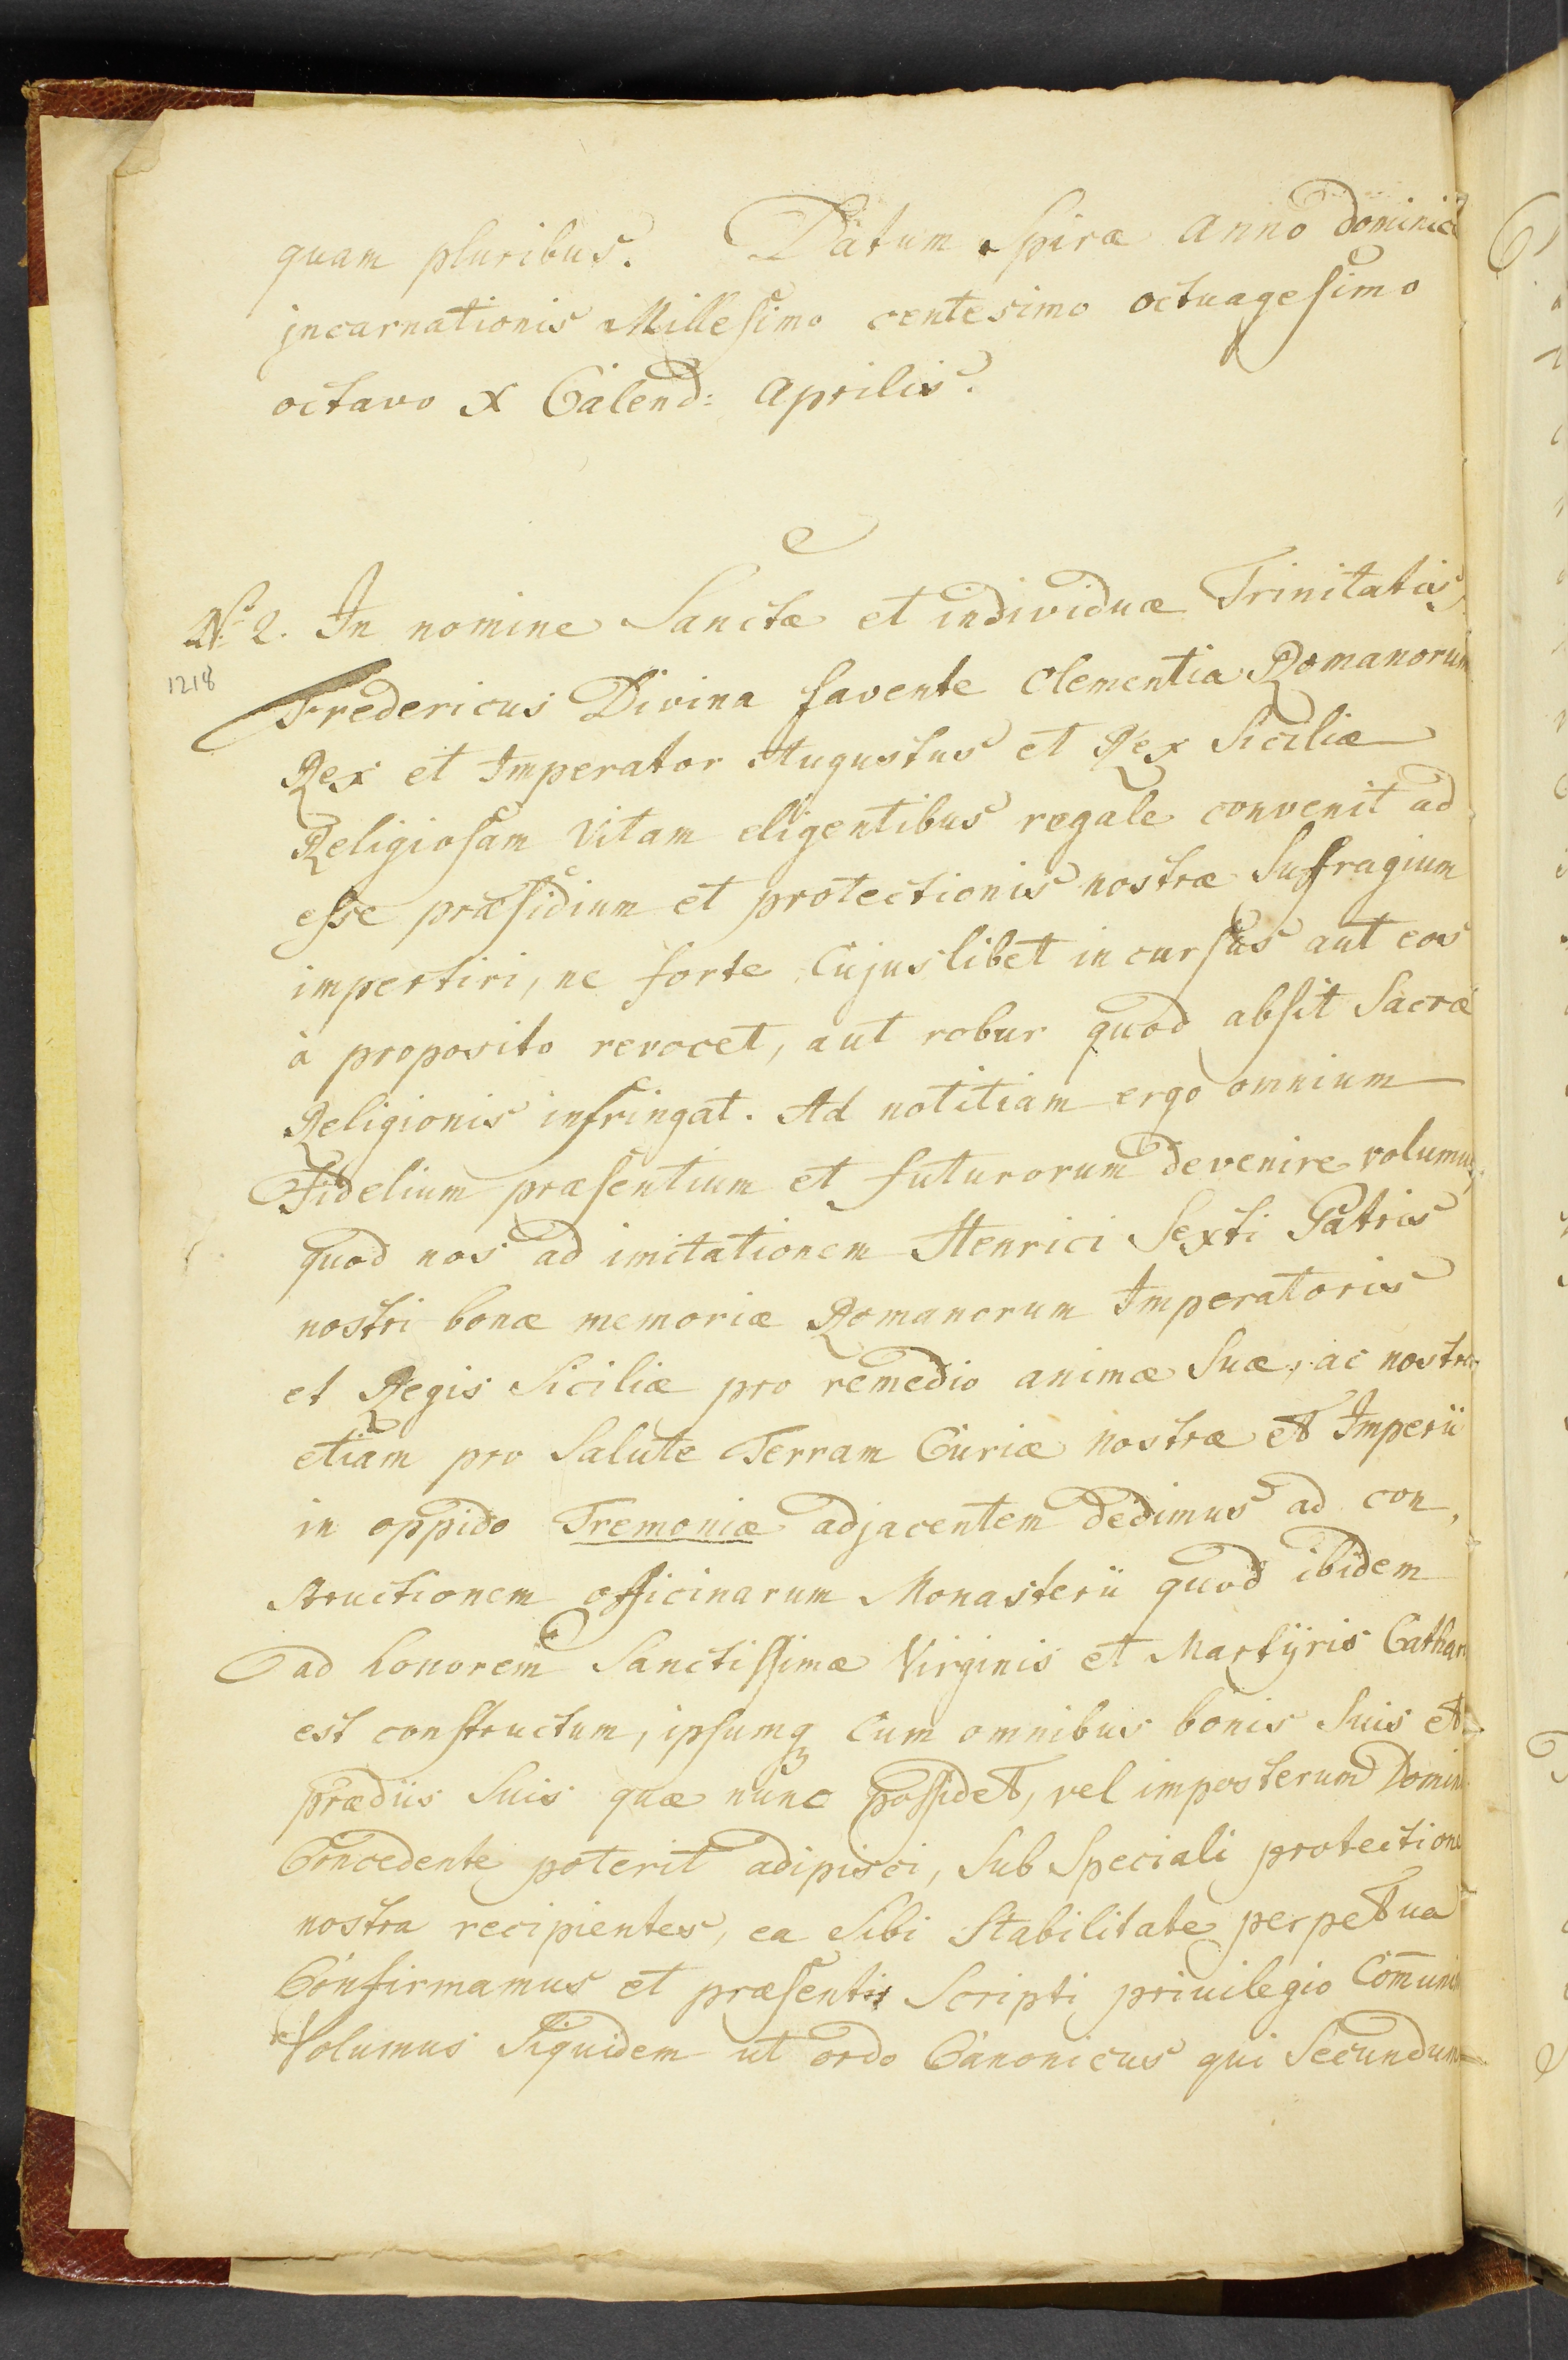 quam pluribus. Datum Spiræ anno dominicæ
jncarnationis Millesimo centesimo octuagesimo
octavo X Calend: Aprilis.
No. 2. In nomine Sanctæ et individuæ Trinitatis,
1218
Fredericus Divina favente Clementia Romanorum
Rex et Imperator Augustus et Rex Siciliæ
Religiosam Vitam eligentibus regale convenit ad
esse præsidium et protectionis nostræ Suffragium
impertiri, ne forte Cujuslibet incursus aut eos
à proposito revocet, aut robur quod absit Sacræ
Religionis infringat. Ad notitiam ergo omnium
Fidelium præsentium et futurorum devenire volumus,
quod nos ad imitationem Henrici Sexti Patris
nostri bonæ memoriæ Romanorum Imperatoris
et Regis Siciliæ pro remedio animæ Suæ, ac nostræ
etiam pro Salute Terram Curiæ nostræ et Imperii
in oppido Tremoniæ adjacentem dedimus ad con,
structionem officinarum Monasterii quod ibidem
ad honorem Sanctissimæ Virginis et Martÿris Cathar
est constructum, ipsumq cum omnibus bonis Suis et
prædiis Suis quæ nunc possidet, vel imposterum Domin
Concedente poterit adipisci, Sub Speciali protectione
nostra recipientes, ea Sibi Stabilitate perpetua
Confirmamus et præsentis Scripti privilegio Com̅uni
Volumus Siquidem ut ordo Canonicus qui Secundum